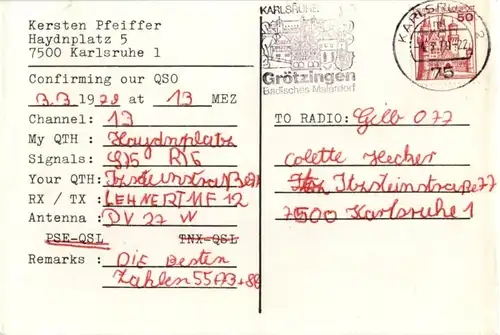 Kersten Pfeiffer
Haydnplatz 5
7500 Karlsruhe 1
Confirming our QSO
3.3 1978 at 13 MEZ
Channel: 13
My QTH : Haydnplatz
Signals: R/6
Your QTH:
RX / TX : LEHNERT MF 12
Antenna : DV 27 W
PSE-QSL TNX-QSL
Remarks : DIE Besten
Zahlen 55 + 88
KARLSRUHE
Grötzingen
Badisches Malerdorf
KARLSRUHE 2
75
50
TO RADIO: Gilb 077
Colette Hecker
Itzsteinstraße 77
7500 Karlsruhe 1